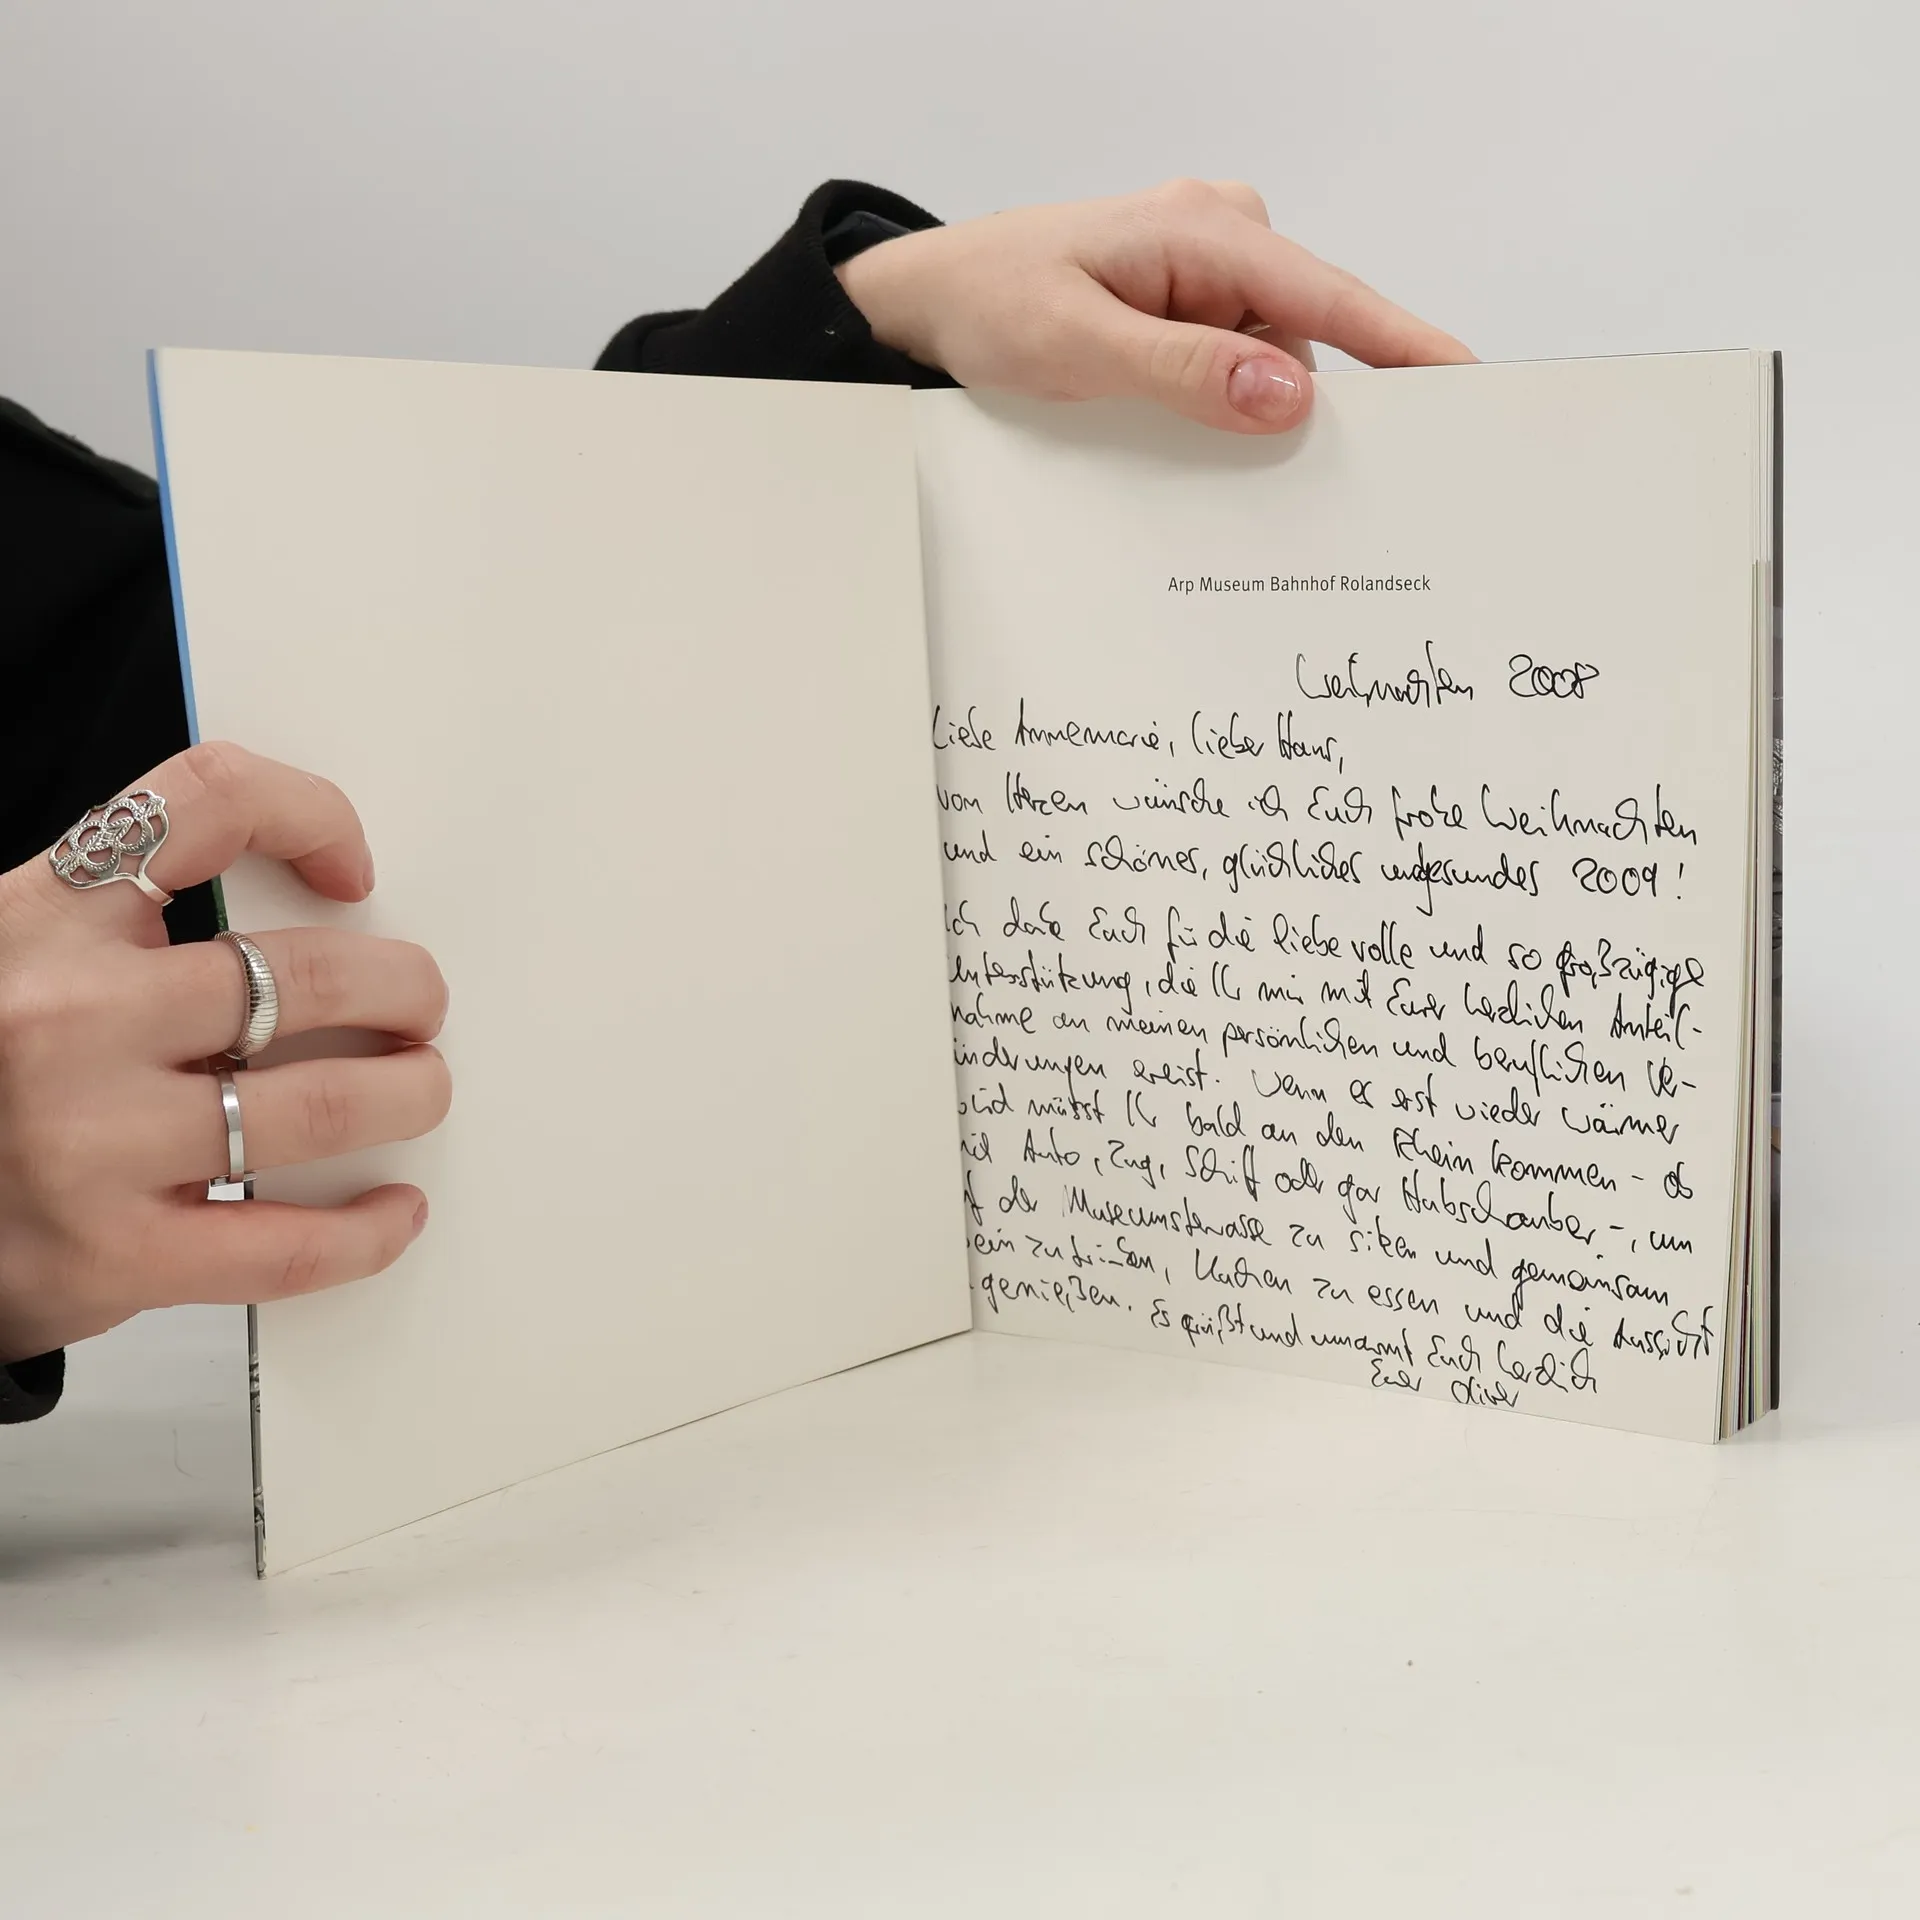 Arp Museum Bahnhof Rolandseck
Weihnachten 2008
Liebe Annemarie, lieber Hans,
von Herzen wünsche ich Euch frohe Weihnachten
und ein schönes, glückliches und gesundes 2009!
ich danke Euch für die liebevolle und so großzügige
Unterstützung, die Ihr mir mit Eurer herzlichen Anteil-
nahme an meinen persönlichen und beruflichen Ver-
änderungen erweist. Wenn es erst wieder wärmer
wird müsst Ihr bald an den Rhein kommen - ob
mit Auto, Zug, Schiff oder gar Hubschrauber -, um
auf der Museumsterrasse zu sitzen und gemeinsam
Wein zu trinken, Kuchen zu essen und die Aussicht
genießen. Es grüßt und umarmt Euch herzlich
Euer Oliver